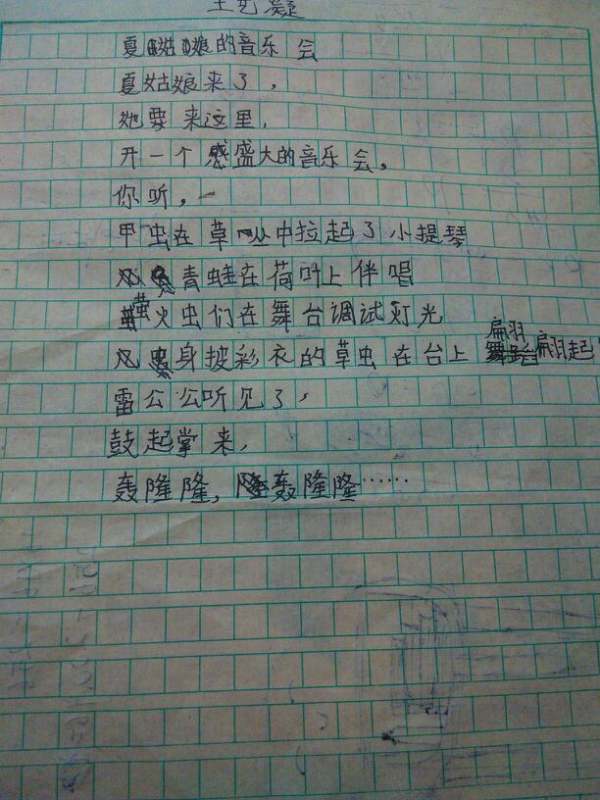 艺凝
夏姑娘的音乐会
夏姑娘来了，
她要来这里，
开一个盛大的音乐会。
你听，
甲虫在草丛中拉起了小提琴
青蛙在荷叶上伴唱
萤火虫们在舞台调试灯光
身披彩衣的草虫在台上翩翩起
雷公公听见了，
鼓起掌来，
轰隆隆，轰隆隆……